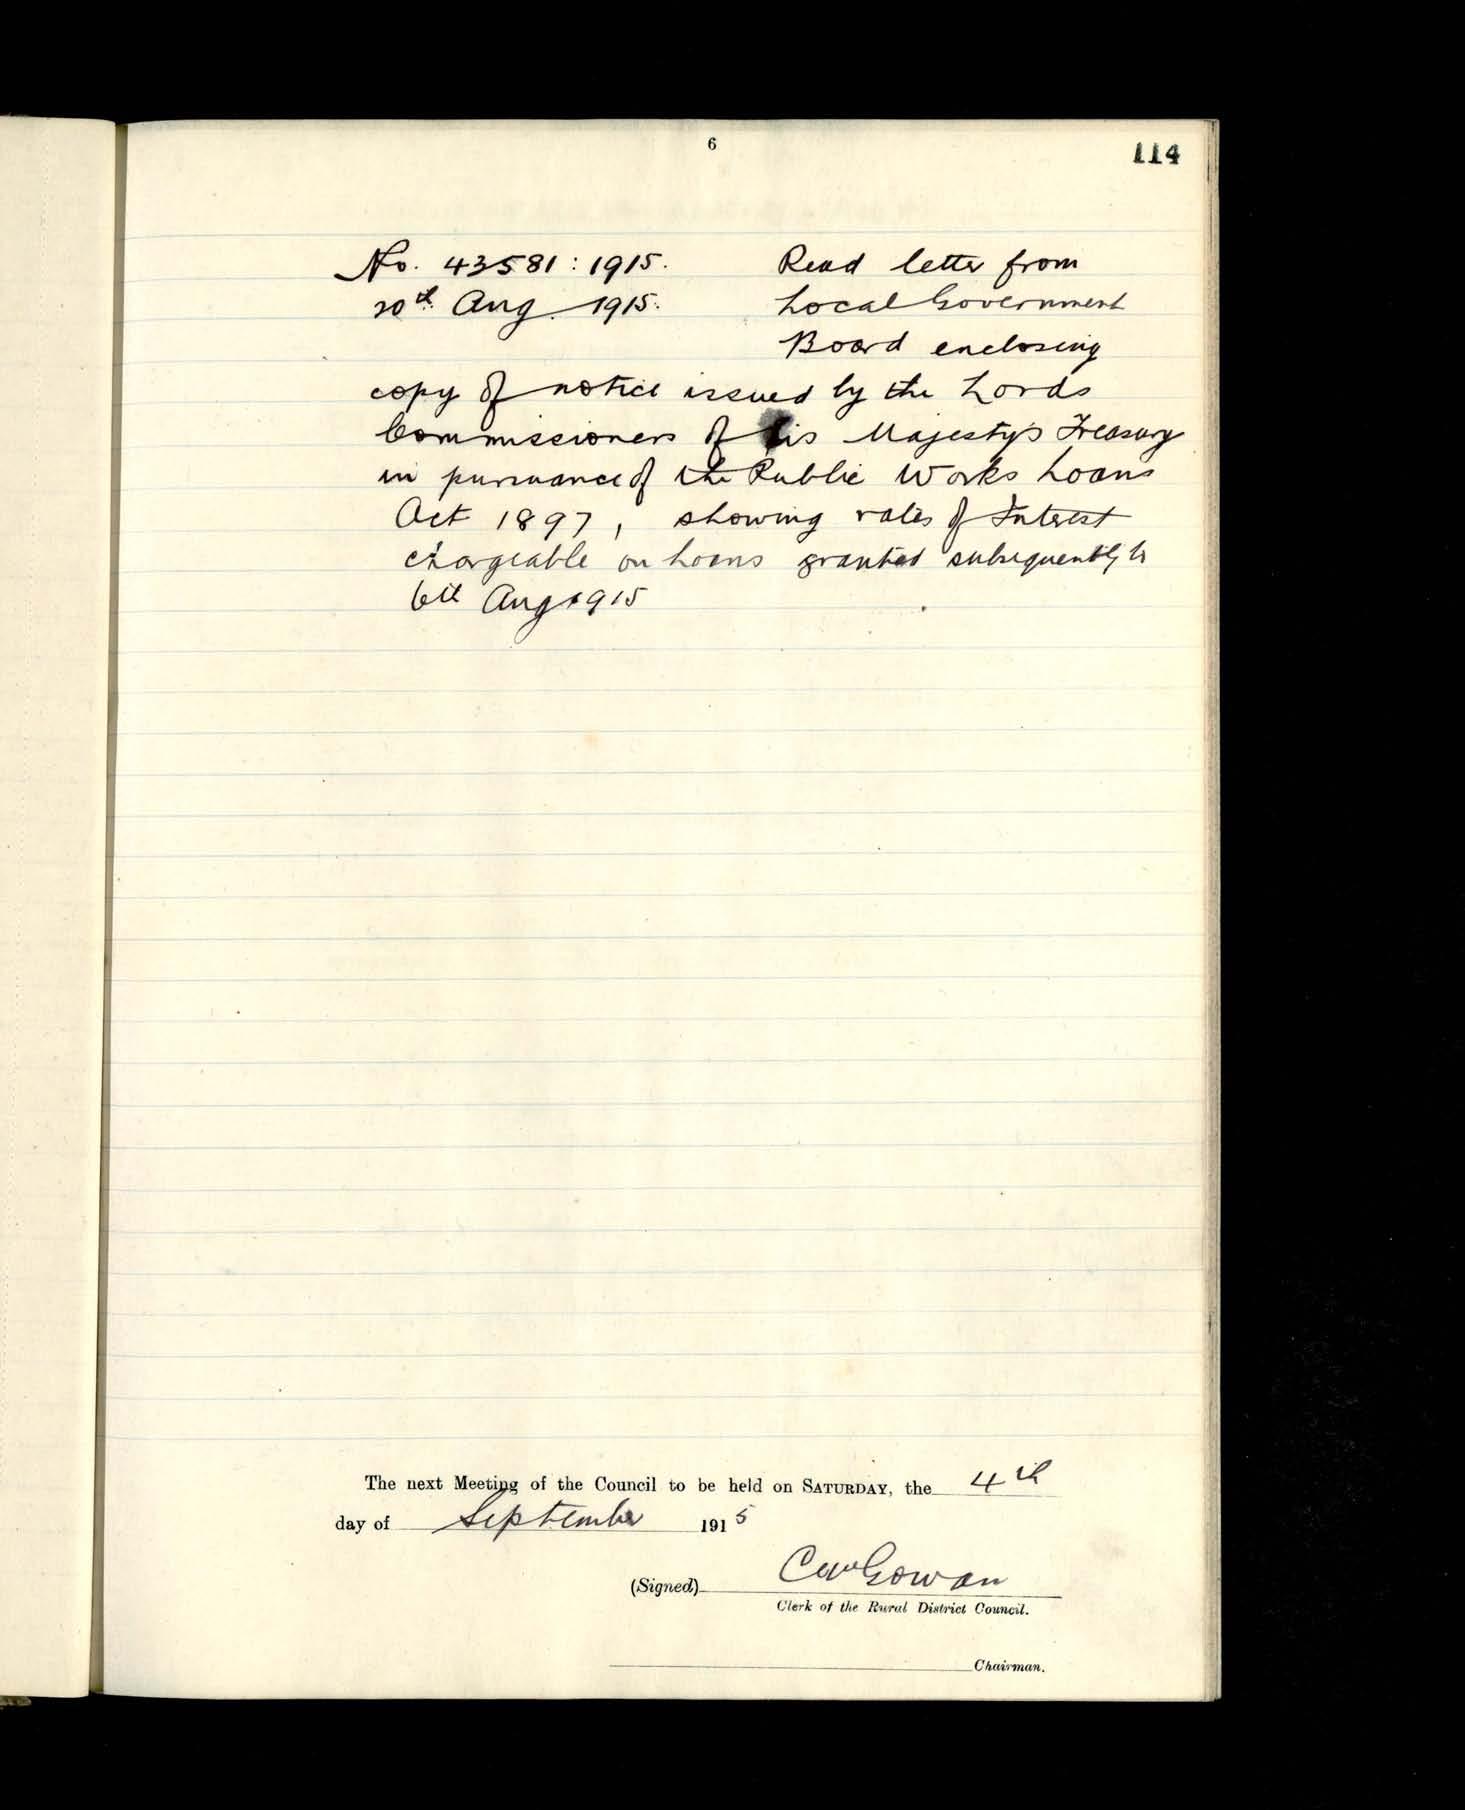 6
114
No. 43581 : 1915. Read letter from
20th Aug 1915. Local Government
Board enclosing
copy of notice issued by the Lords
Commissioners of his Majesty's Treasury
in pursuance of the Public Works Loans
Act 1897, showing rates of Interest
chargeable on Loans granted subsequently to
6th Aug 1915
The next Meeting of the Council to be held on SATURDAY, the 4th
day of September 1915
(Signed) Gowan
Clerk of the Rural District Council.
Chairman.